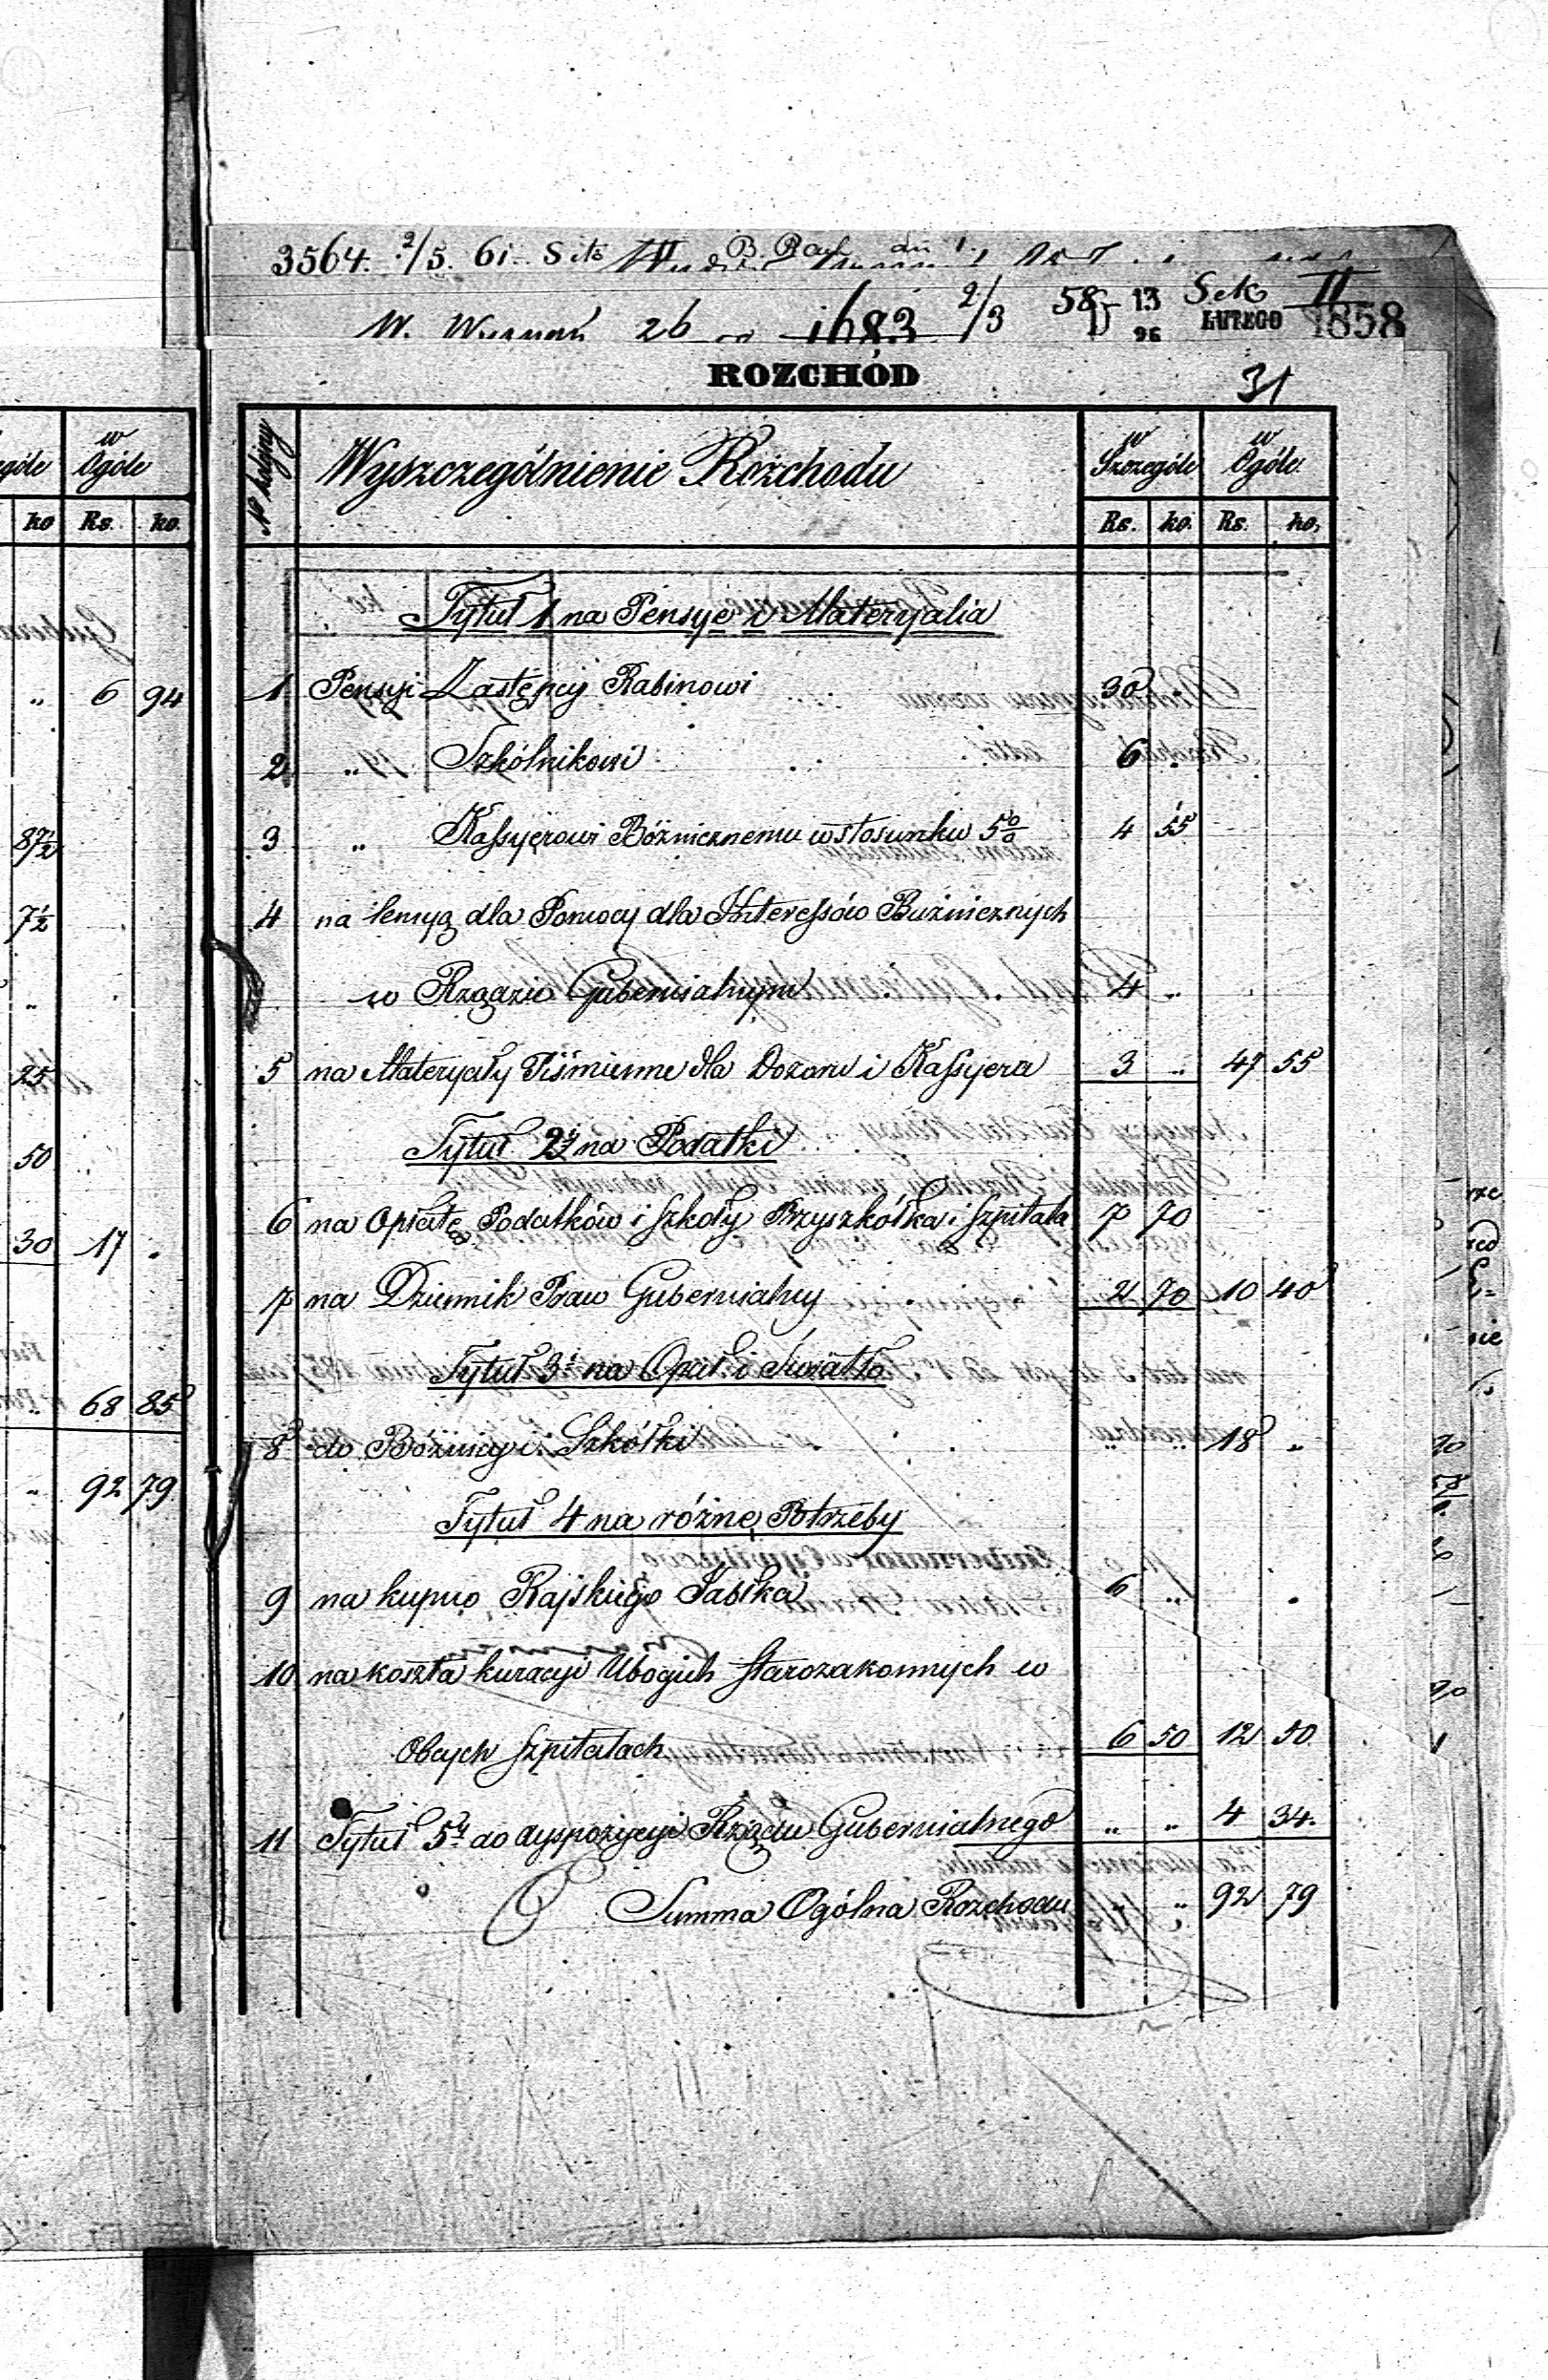 3564. 2/5. 61. Sek II B. Rach
26 1683 2/3 58 13 Sek II
96 LUTEGO 1858
ROZCHÓD
31
No kolejny Wyszczególnienie Rozchodu w Szczególe w Ogóle
Rs. ko. Rs. ko.
Tytuł 1 na Pensye i Materyalia
1 Pensyi Zastępcy Rabinowi 30 "
2 " Szkólnikowi 6 "
3 " Kassyerowi Bóżnicznemu w stosunku 5 % 4 55
4 na dla Pomocy dla Interessów Buźnicznych
w Rządzie Gubernialnym 4 "
5 na Materyały Piśmienne dla Dozoru i Kassyera 3 " 47 55
Tytuł 2i na Podatki
6 na Opłatę Podatków i Szkoły Przyszkółka i Szpitala 7 70
7 na Dziennik Praw Gubernialny 2 70 10 40
Tytuł 3i na Opał i Światło
8 do Bóżnicy i Szkółki " " 18 "
Tytuł 4 na różne Potrzeby
9 na kupno Rajskiego Jabłka 6 "
10 na koszta kuracyi Ubogich Starozakonnych w
Obcych Szpitalach 6 50 12 50
11 Tytuł 5ty do dyspozycyi Rządu Gubernialnego " " 4 34.
Summa Ogólna Rozchodu " " 92 79
w
góle Ogóle
ko Rs. ko.
" 6 94
87½
7½
"
25
50
30 17 "
" 68 85
" 92 79